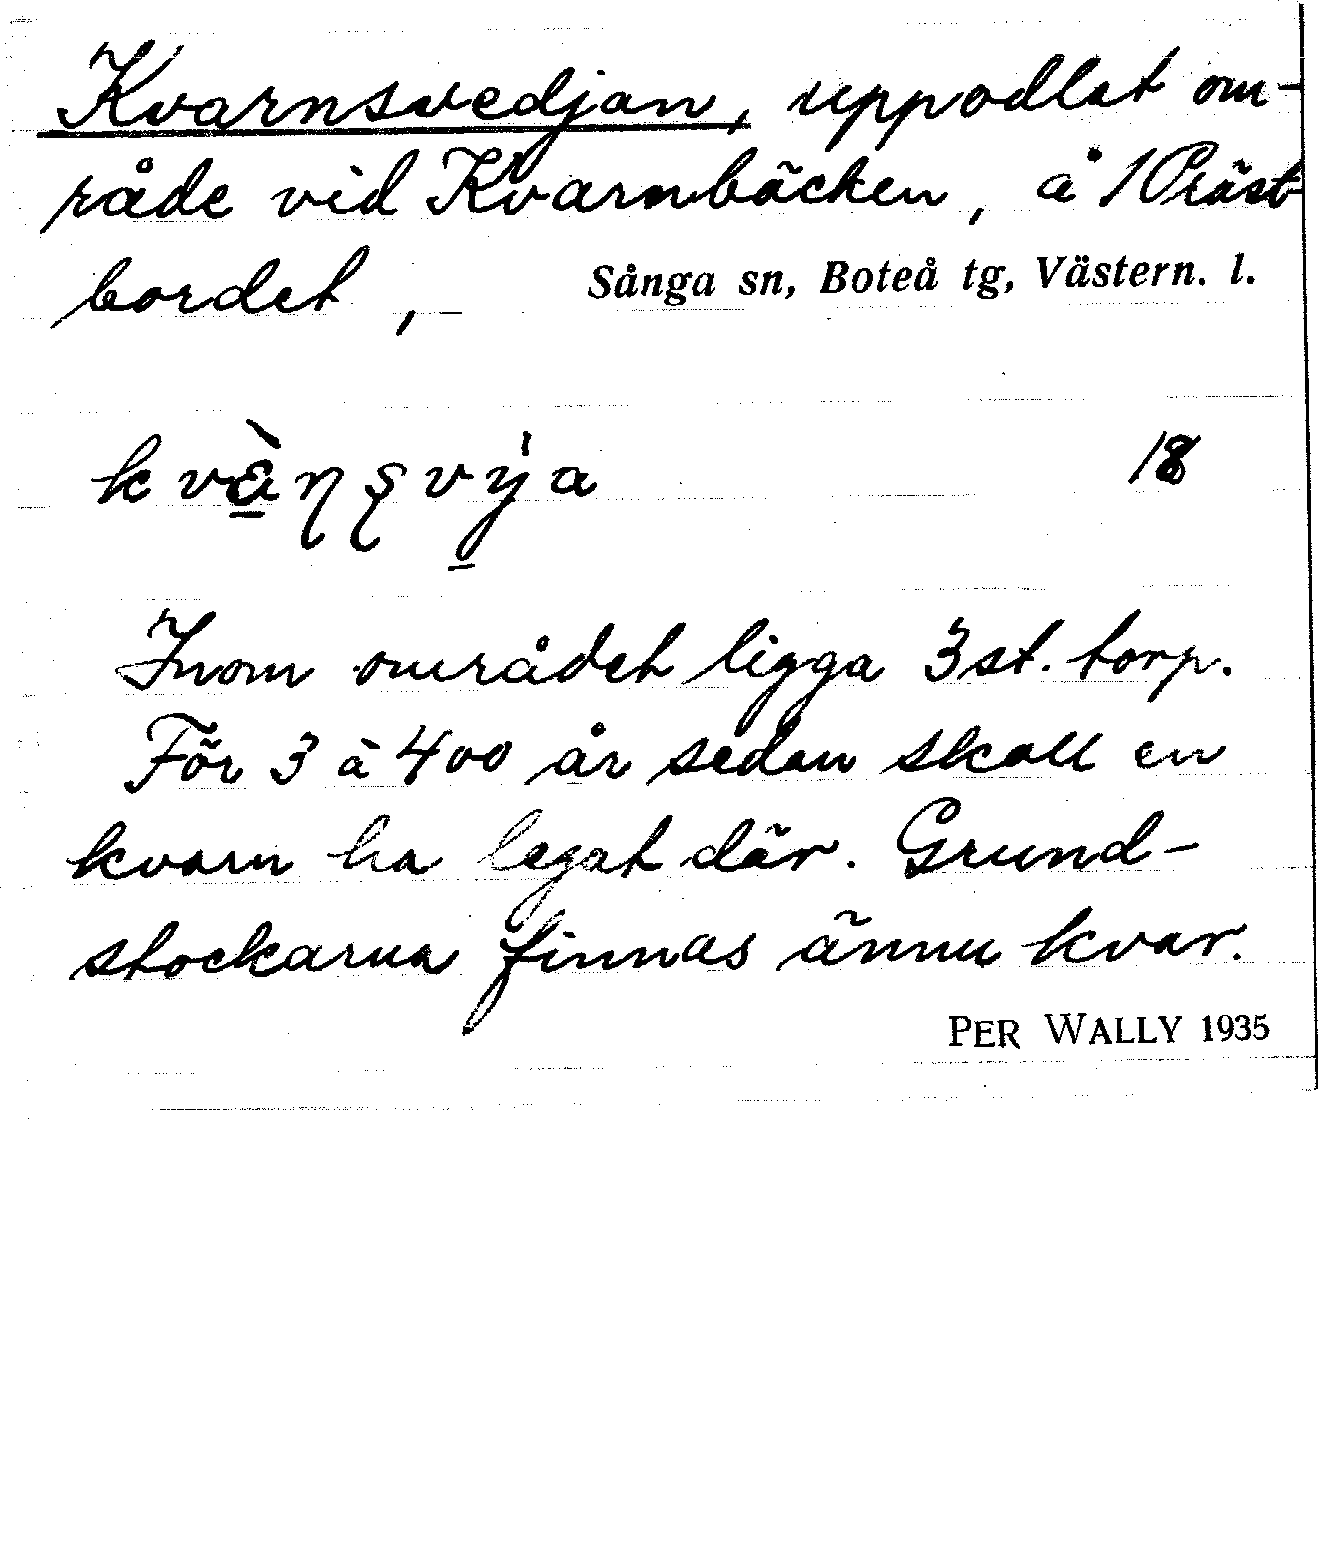 Kvarnsvedjan, uppodlat om-
råde vid Kvarnbäcken, å Präst
bordet, Sånga sn, Boteå tg, Västern. l.
18
Inom området ligga 3 st. torp.
För 3 à 400 år sedan skall en
kvarn ha legat där. Grund-
stockarna finnas ännu kvar.
PER WALLY 1935